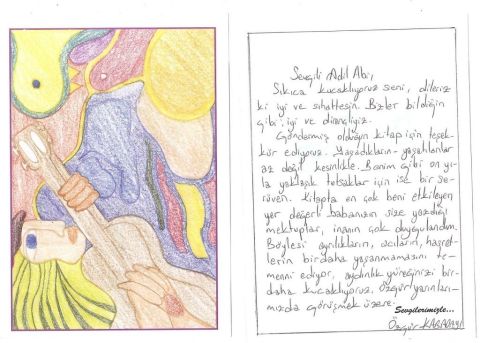 Sevgili Adil Abi,
Sıkıca kucaklıyoruz seni, dileriz
ki iyi ve sıhattesin. Bizler bildiğin
gibi, iyi ve dirençliyiz.
Göndermiş olduğun kitap için teşek-
kür ediyoruz. Yaşadıkların-yaşatılanlar
az değil kesinlikle. Benim gibi on yı-
la yaklaşık tutsaklar için ise bir se-
rüven. Kitapta en çok beni etkileyen
yer değerli babanızın size yazdığı
mektuplar, inanın çok duygulandım.
Böylesi ayrılıkların, acıların, hasret-
lerin birdaha yaşanmamasını te-
menni ediyor, aydınlık yüreğinizi bir-
daha kucaklıyoruz. Özgür yarınları-
mızda görüşmek üzere.
Sevgilerimizle...
Özgür KARABAYI